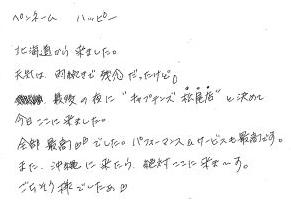 ペンネーム ハッピー
北海道から来ました。
天気は雨続きで残念だったけど。
最後の夜に "キャプテンズ松尾店" と決めて
今日ここに来ました。
全部最高♡♡でした。パフォーマンス&サービスも最高です。
また、沖縄に来たら、絶対ここに来ま〜す。
ごちそう様でしたぁ♡